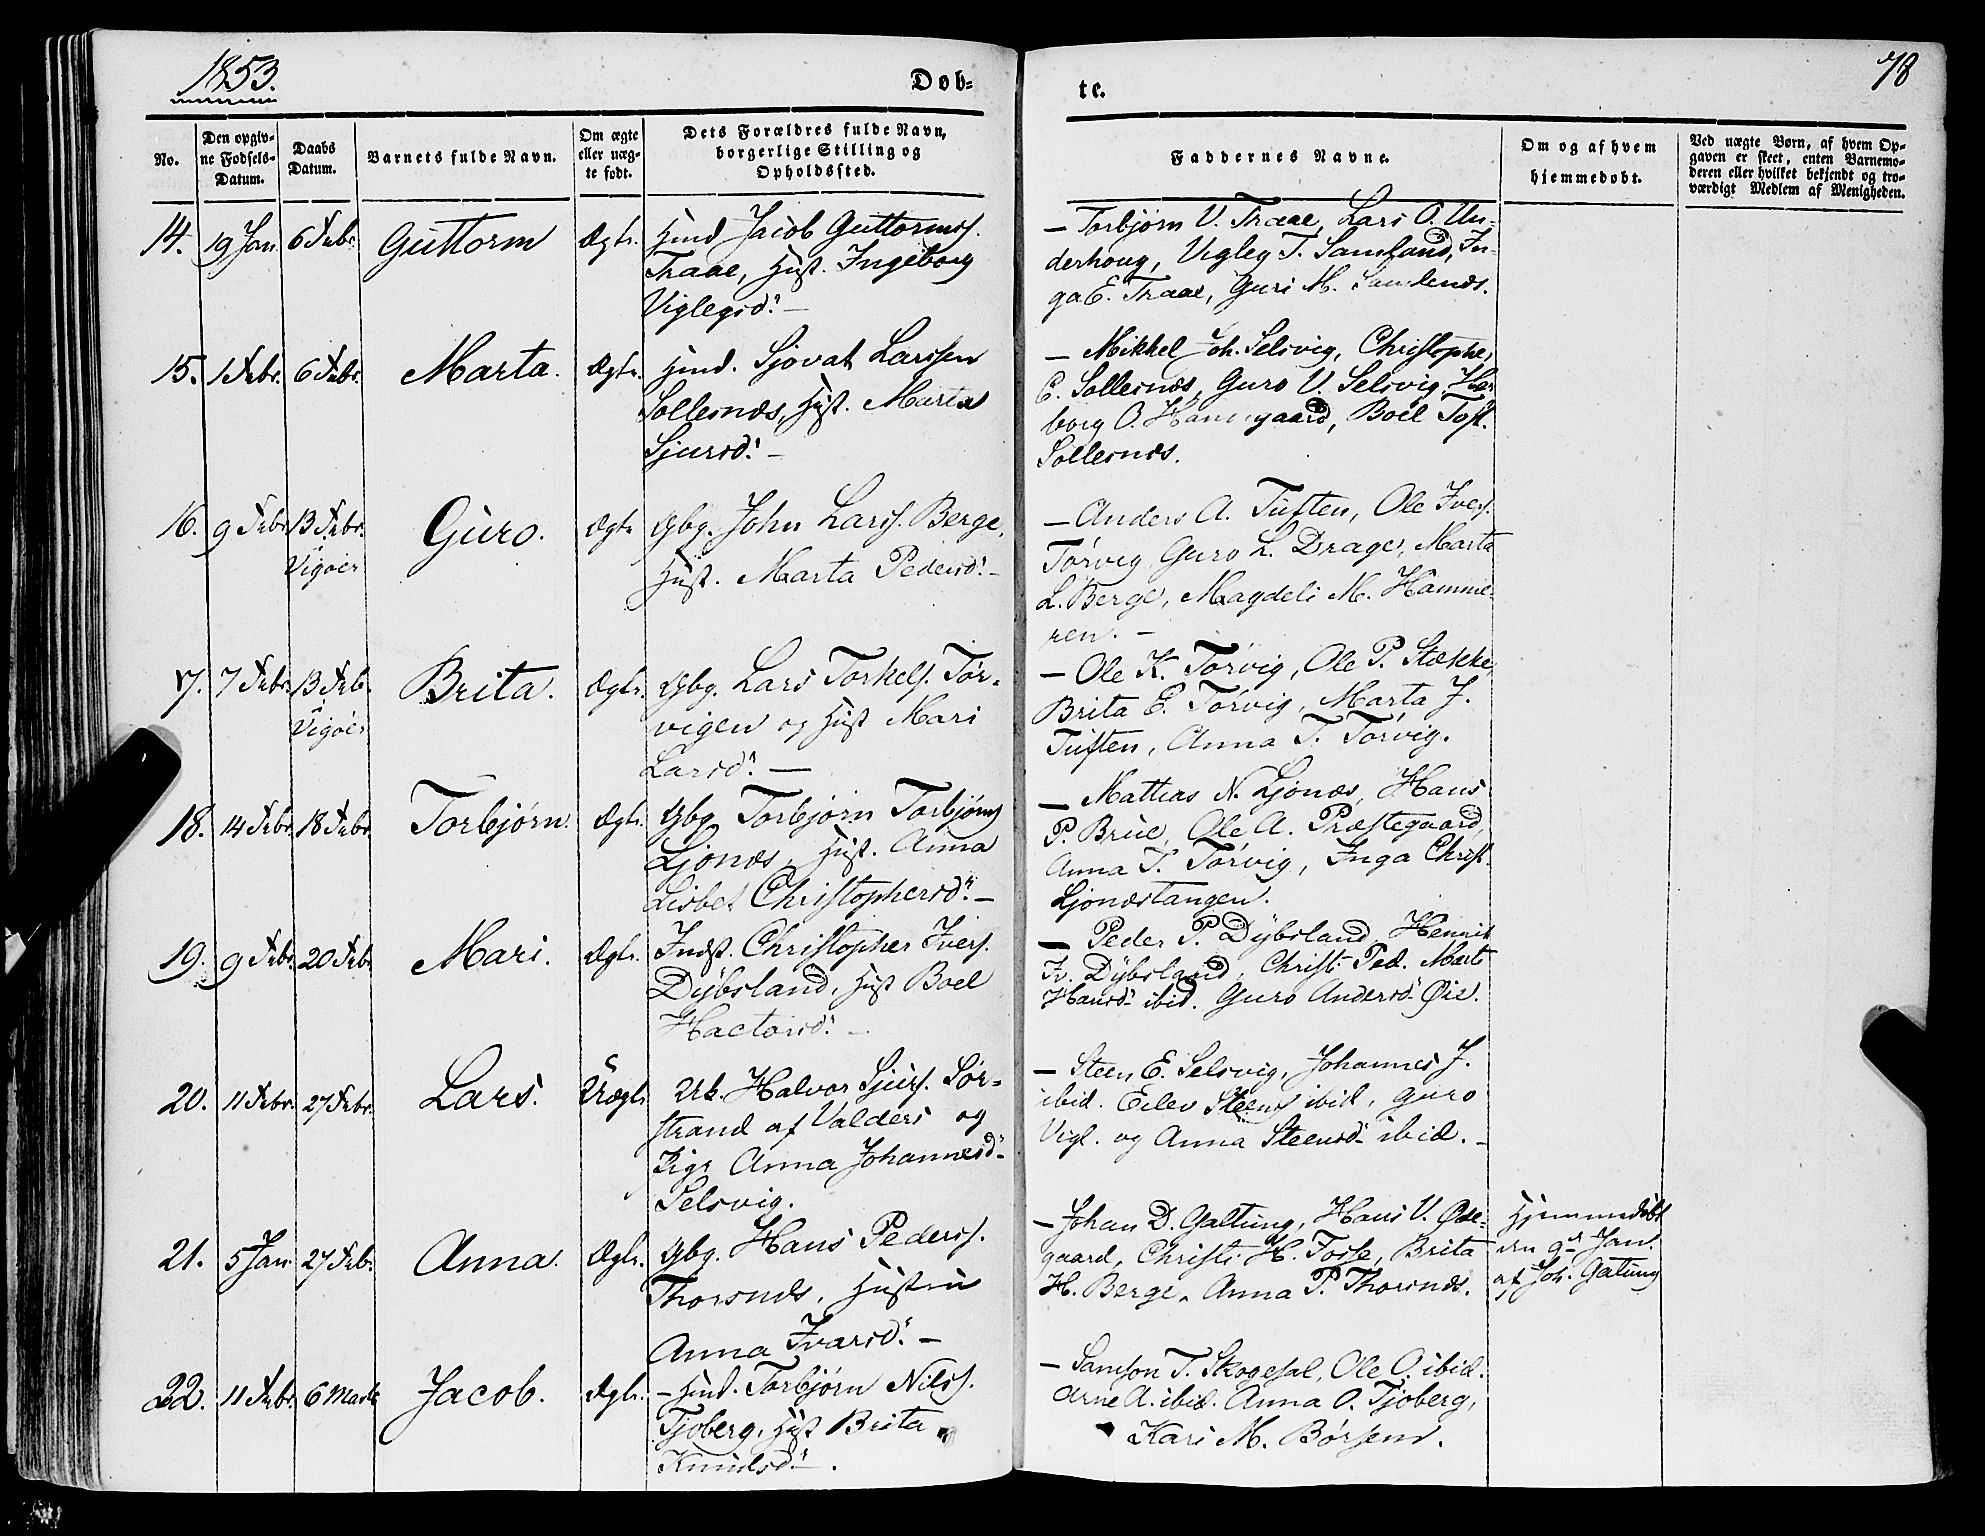 1853.
Døb-
te.
78
No.
Den opgiv-
ne Fødsels-
Datum.
Daabs
Datum.
Barnets fulde Navn.
Om ægte
eller uæg-
te født.
Dets Forældres fulde Navn,
borgerlige Stilling og
Opholdssted.
Faddernes Navne.
Om og af hvem
hjemmedøbt.
Ved uægte Børn, af hvem Op-
gaven er skeet, enten Barnemo-
deren eller hvilket bekjendt og tro-
værdigt Medlem af Menigheden.
14. 19 Jan. 6 Febr. Guttorm Ægte. Huusmd Jacob Guttorms.
Traae, Hust. Ingeborg
Viglegsd: —
— Torbjørn V. Traae, Lars O. Un-
derhoug, Vigleg T. Samland, In-
ga E. Traae, Guri M. Samlenæs.
15. 1 Febr. 6 Febr. Marta. Ægte. Huusmd. Sjovat Larssen
Sollesnæs, Hust. Marta
Sjursd: —
— Mikkel Joh. Selsvig, Christopher
C. Sollesnæs, Guro V. Selsvig, Her
borg O. gaard, Boel Tost.
Sollesnæs.
16. 9 Febr. 13 Febr. Guro. Ægte Gbg. John Larss. Berge,
Vigøer
Hust. Marta Pedersd: —
— Anders A. Tuften, Ole Ivers.
Tørvig, Guro L. Drage, Marta
L. Berge, Magdeli M. Hamme-
ren. —
17. 7 Febr. 13 Feb. Brita. Ægte. Gbg. Lars Torkels. Tør-
Vigøer
vigen og Hust Mari
Larsd: —
— Ole K. Tørvig, Ole P. Stække,
Brita E. Tørvig, Marta J.
Tuften, Anna T. Tørvig.
18. 14 Febr. 18 Febr. Torbjørn. Ægte. Gbg. Torbjørn Torbjørns
Ljonæs, Hust. Anna
Lisbet Christophersd: —
— Mattias N. Ljonæs, Hans
P. Brue, Ole A. Præstegaard,
Anna T. Tørvig, Inga Christ.
Ljonæstangen.
19. 9 Febr. 20 Febr. Mari. Ægte. Indst. Christopher Ivers.
Dybsland, Hust Boel
Hactorsd: —
— Peder P. Dybsland, Henrik
Iv. Dybsland, Christi Ped. Marte
Hansd: ibid. Guro Andersd: Øie.
20. 11 Febr. 27 Febr. Lars. Uægte. Uk. Halvor Sjurs. Sør-
strand af Valders og
Pige Anna Johannesd:
Selsvig.
— Steen E. Selsvig, Johannes J.
ibid. Eilev Steens ibid, Guro
Vigl. og Anna Steensd: ibid. —
21. 5 Jan. 27 Feb. Anna. Ægte. Gbg. Hans Peders.
Thorsnæs, Hustru
Anna Ivarsd: —
— Johan D. Galtung, Hans V. Øde-
gaard, Christi H. Fosse, Brita
H. Berge, Anna P. Thorsnæs.
Hjemmedøbt
den 9de Jan.
af Joh. Galtung
22. 11 Febr. 6 Marts Jacob. Ægte. — Huusmd. Torbjørn Nilss.
Tjoberg, Hust Brita
Knudsd: — .
— Samson T. Skogesal, Ole O. ibid.
Arne A. ibid. Anna O. Tjoberg,
Kari M. Børsem.